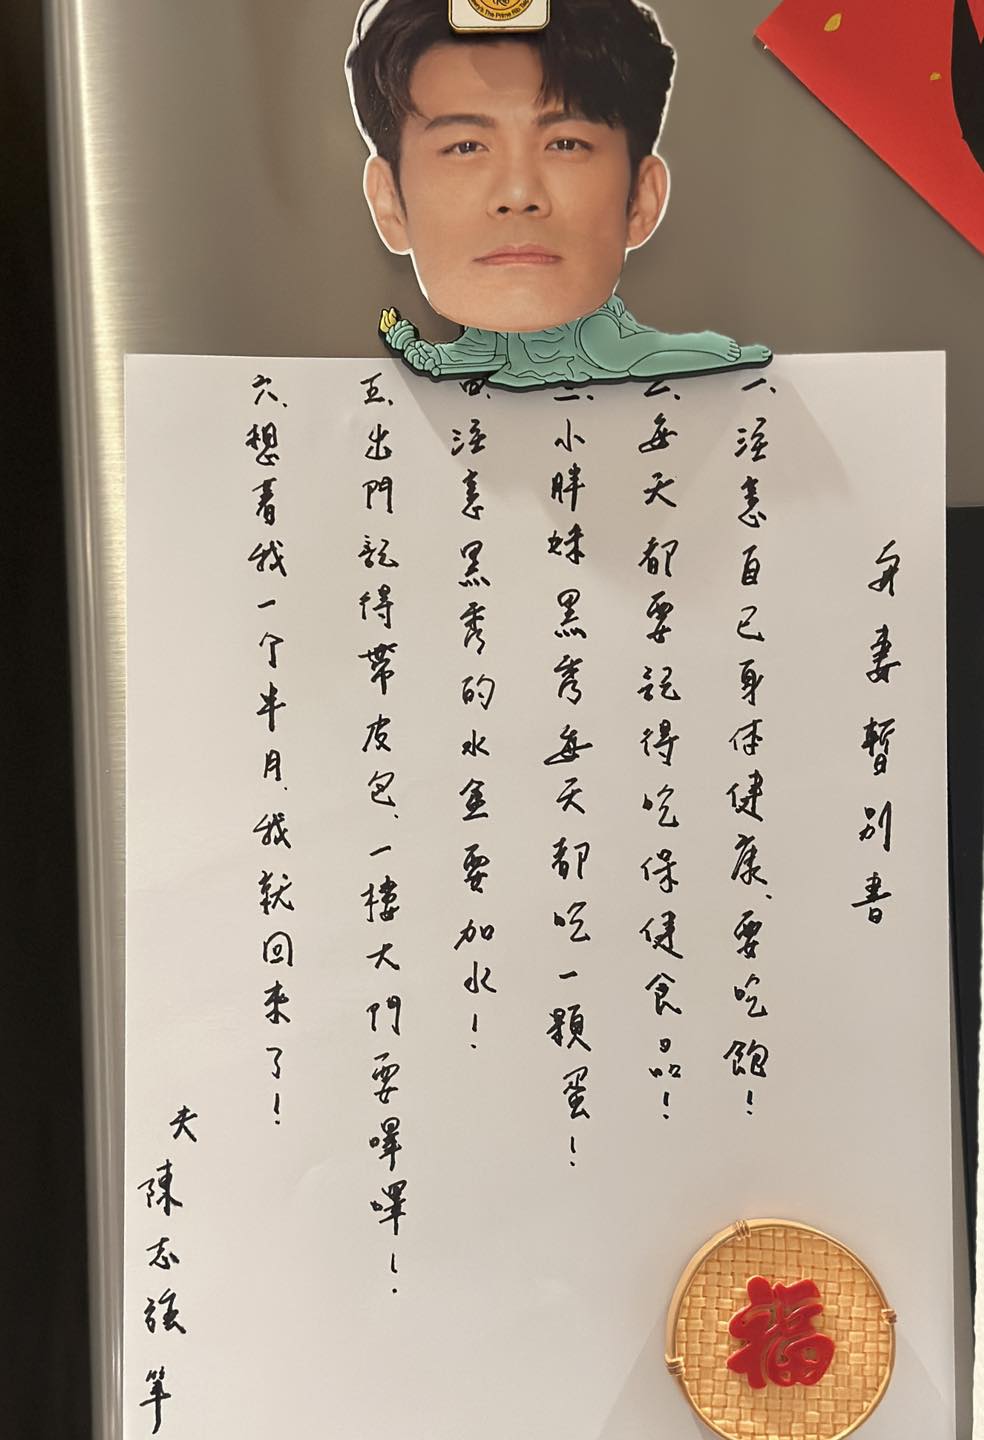 与妻暫別書
一、注意自己身体健康、要吃飽！
二、每天都要記得吃保健食品！
三、小胖妹黑秀每天都吃一顆蛋！
四、注意黑秀的水盆要加水！
五、出門記得帶皮包、一樓大門要嗶嗶！
六、想着我一个半月、我就回來了！
夫
陳志強 筆
福